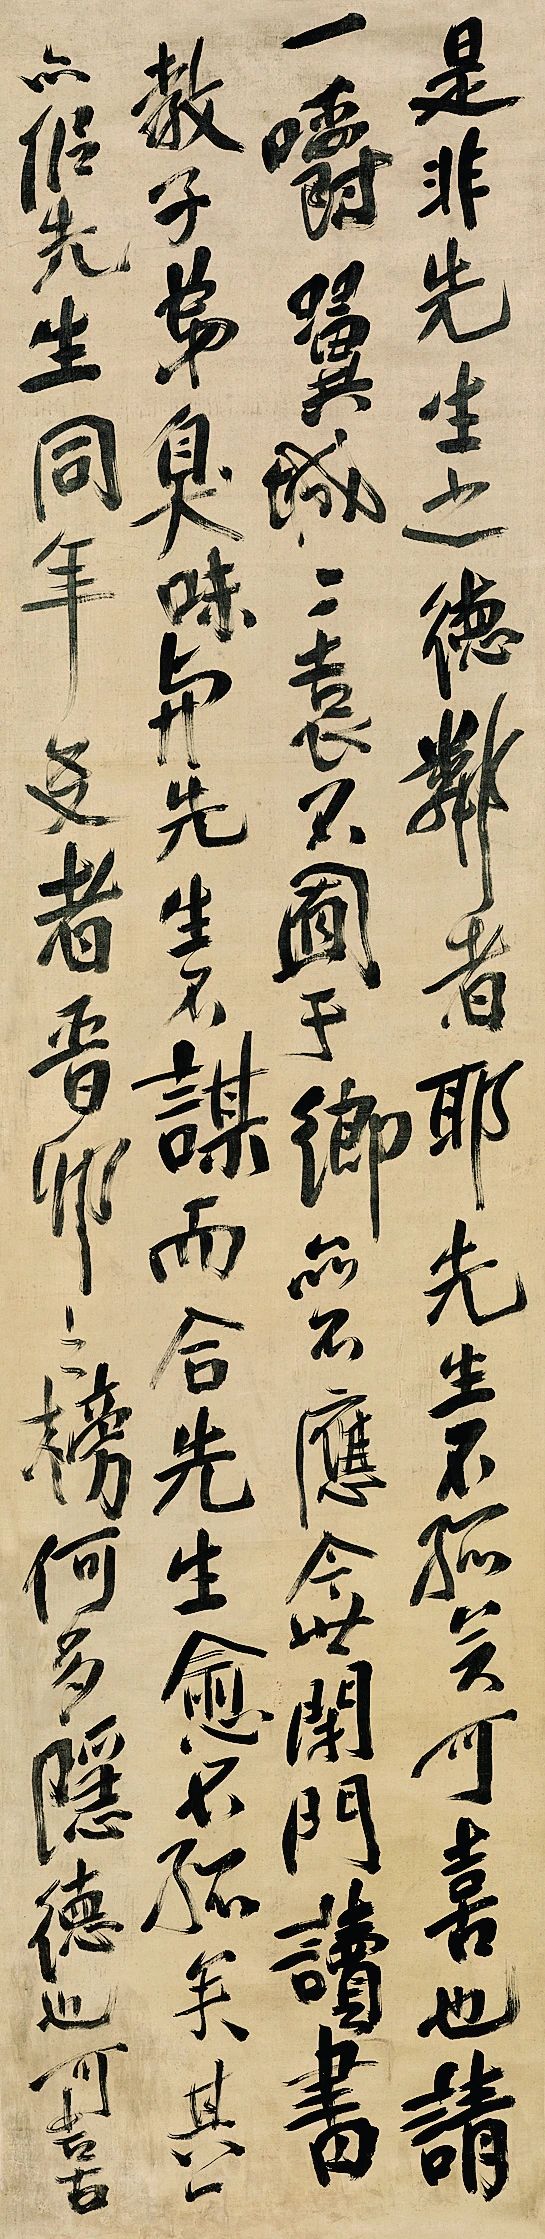 是非先生之德鄰者耶先生不孤矣可喜也請
一嚼翼城二袁不囿于鄉亦不應今世閉門讀書
教子弟臭味與先生不謀而合先生愈不孤矣其一
亦佀先生同年友者晉卯之榜何多隱德也可喜